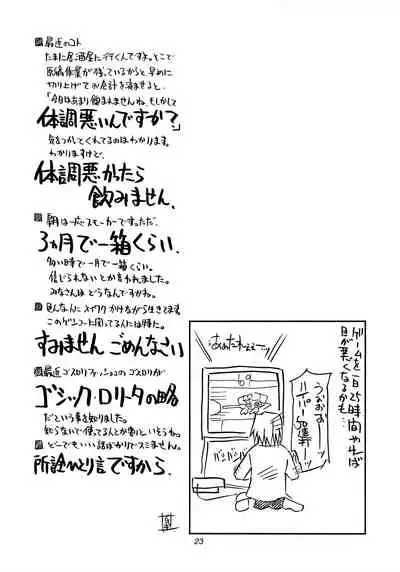 最近のコト
たまに居酒屋に行くんですよ。そこで
原稿作業が残っているからと早めに
切り上げてお会計を済ませると、
「今日はあまり飲まれませんね。もしかして
体調悪いんですか?」
気をつかってくれてるのはわかります。
わかりますけど、
体調悪かったら
飲みません、
スモーカーですっただ、
3ヵ月で一箱くらい、
多い時で一月で一箱くらい。
信じられないとか言われました。
みなさんは どうなんですかね。
色んな人に メイワク かけながら生きてます
すみません ごめんなさい
最近 ゴスロリファッションの ゴスロリが
ゴシック・ロリータの略
だという事を知りました。
知らないで使ってる人とか多いと いいな。
どーでもいい話ばかりで スミません。
所詮ひとり言ですから、
ゲームを一日25時間やれば
目が悪くなるかも…
うおおおーッ
ハイパー
50連打ーッ
バンバンバン
23